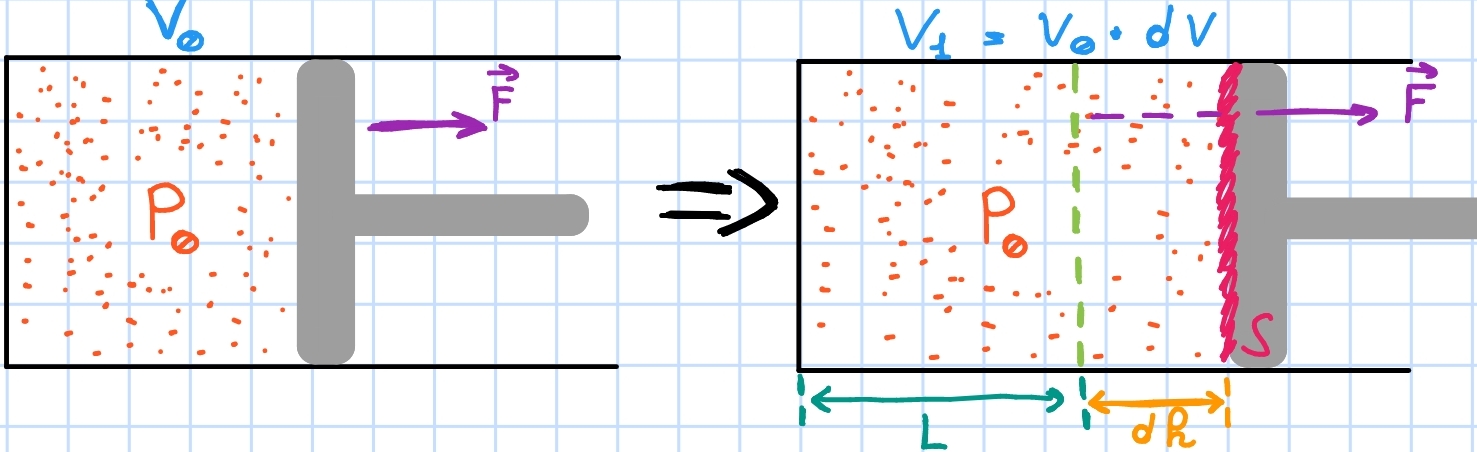 V₀
F
P₀
V₁ = V₀ · dV
F
P₀
S
L
dh